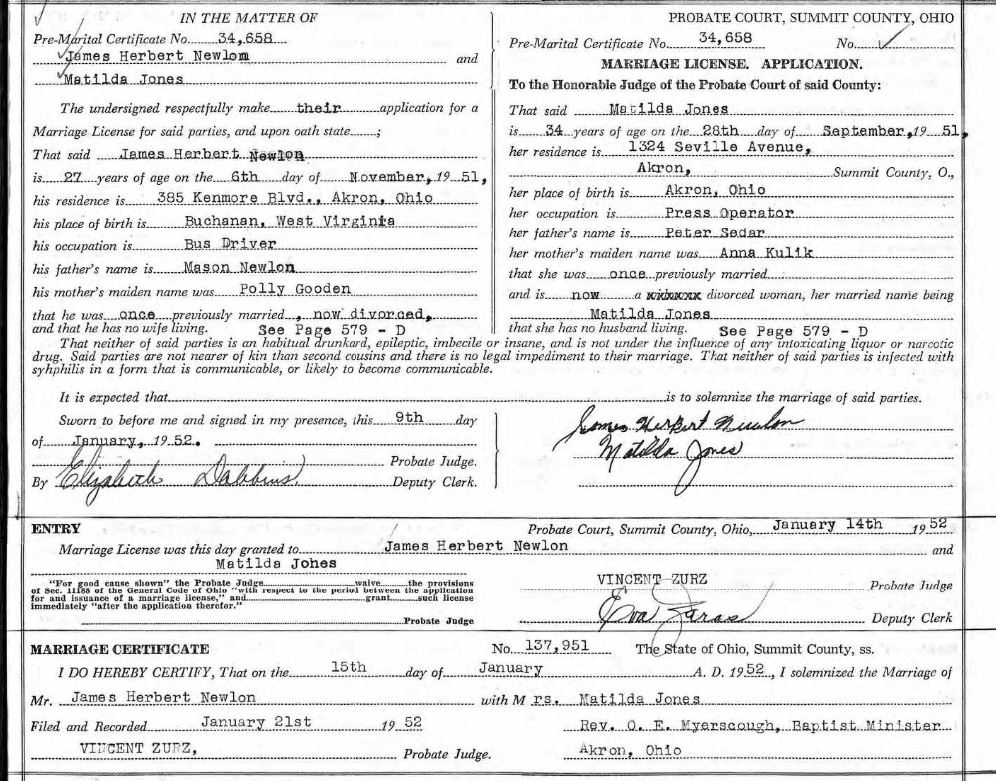 IN THE MATTER OF
Pre-Marital Certificate No. 34,658
James Herbert Newlon and
Matilda Jones
The undersigned respectfully make their application for a
Marriage License for said parties, and upon oath state ;
That said James Herbert Newlon
is 27 years of age on the 6th day of November, 19 51,
his residence is 385 Kenmore Blvd., Akron, Ohio
his place of birth is Buchanan, West Virginia
his occupation is Bus Driver
his father's name is Mason Newlon
his mother's maiden name was Polly Gooden
that he was once previously married , now divorced,
and that he has no wife living. See Page 579 - D
PROBATE COURT, SUMMIT COUNTY, OHIO
Pre-Marital Certificate No. 34,658 No. ✓
MARRIAGE LICENSE. APPLICATION.
To the Honorable Judge of the Probate Court of said County:
That said Matilda Jones
is 34 years of age on the 28th day of September, 19 51,
her residence is 1324 Seville Avenue,
Akron, Summit County, O.,
her place of birth is Akron, Ohio
her occupation is Press Operator
her father's name is Peter Sedar
her mother's maiden name was Anna Kulik
that she was once previously married
and is now a xxxxxxx divorced woman, her married name being
Matilda Jones
that she has no husband living. See Page 579 - D
That neither of said parties is an habitual drunkard, epileptic, imbecile or insane, and is not under the influence of any intoxicating liquor or narcotic
drug. Said parties are not nearer of kin than second cousins and there is no legal impediment to their marriage. That neither of said parties is infected with
syhphilis in a form that is communicable, or likely to become communicable.
It is expected that is to solemnize the marriage of said parties.
Sworn to before me and signed in my presence, this 9th day
of January, 19 52.
Probate Judge.
By Elizabeth Dabbins Deputy Clerk.
James Herbert Newlon
Matilda Jones
ENTRY Probate Court, Summit County, Ohio, January 14th 19 52
Marriage License was this day granted to James Herbert Newlon and
Matilda Johes
"For good cause shown" the Probate Judge waive the provisions
of Sec. 11188 of the General Code of Ohio "with respect to the period between the application
for and issuance of a marriage license," and grant such license
immediately "after the application therefor."
Probate Judge
VINCENT ZURZ Probate Judge
Eva Zaras Deputy Clerk
MARRIAGE CERTIFICATE No. 137,951 The State of Ohio, Summit County, ss.
I DO HEREBY CERTIFY, That on the 15th day of January A. D. 19 52, I solemnized the Marriage of
Mr. James Herbert Newlon with M rs. Matilda Jones
Filed and Recorded January 21st 19 52
Rev. O. E. Myerscough, Baptist Minister
VINCENT ZURZ, Probate Judge.
Akron, Ohio